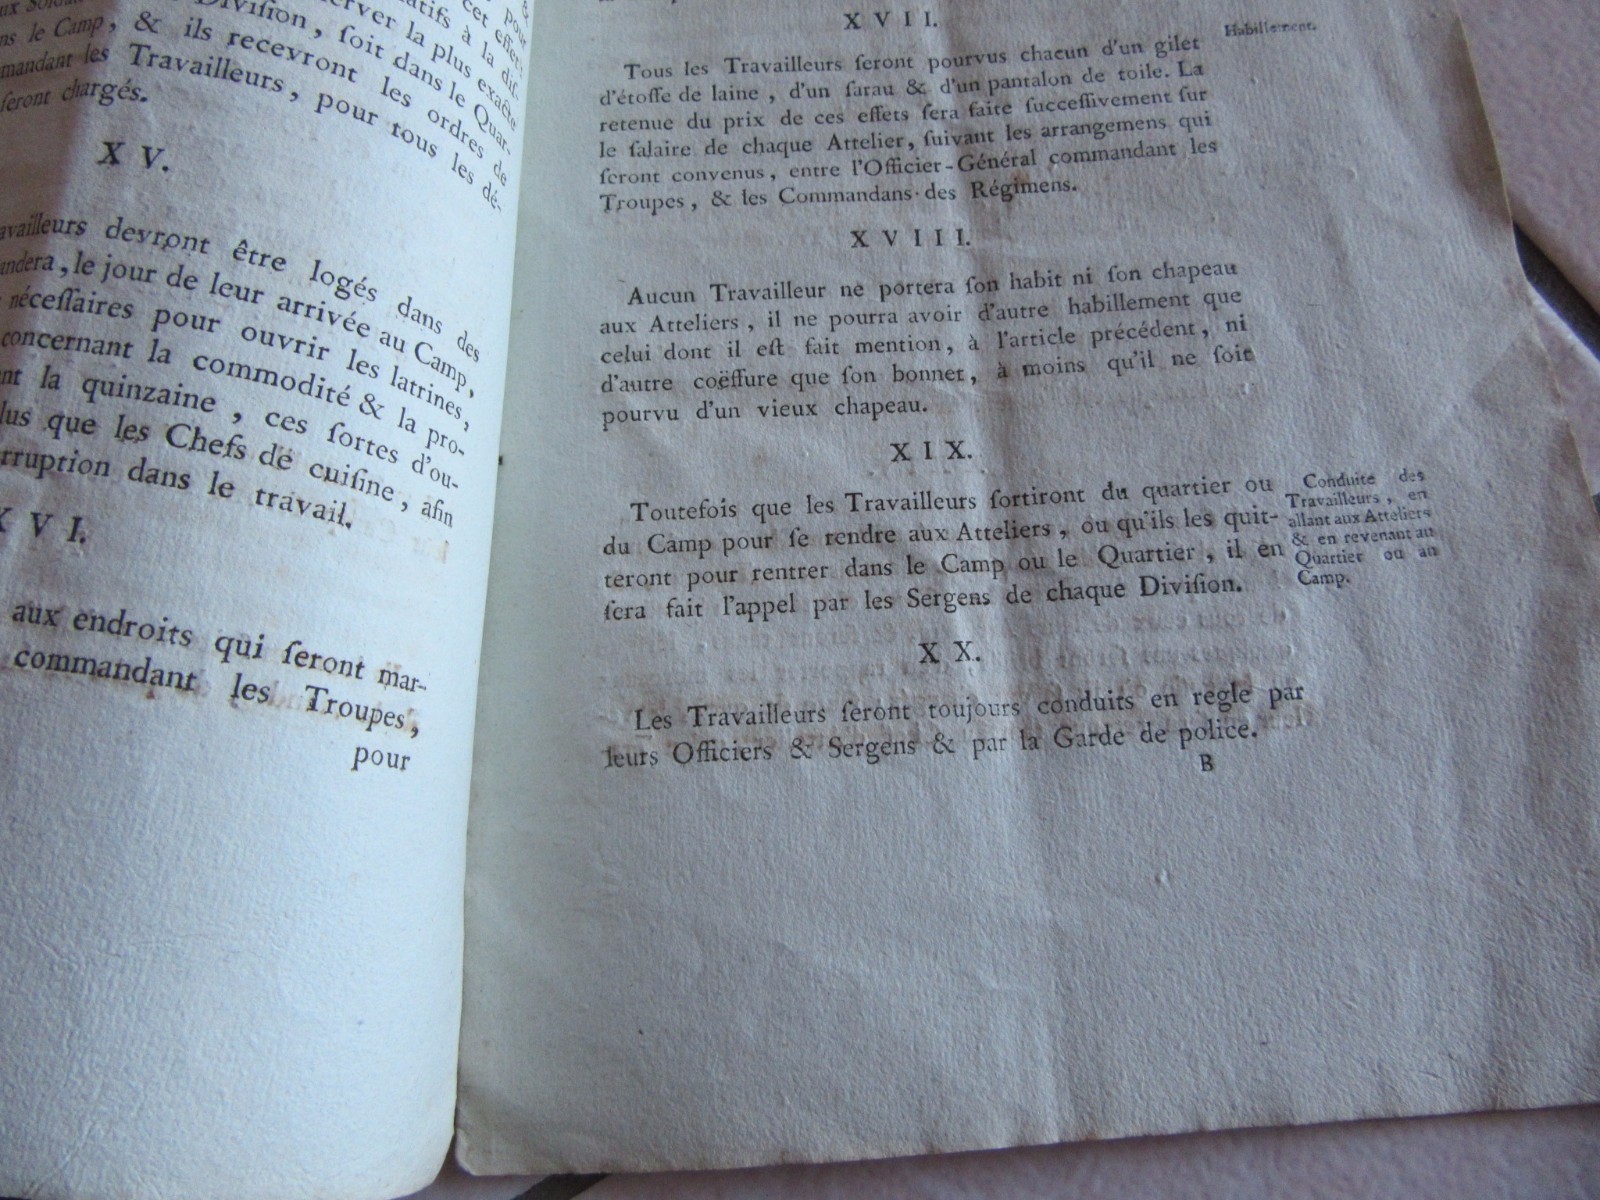 &
pour
cet effet
server la plus exacte
latifs à la dis-
Diviſion, ſoit dans le Quar-
ns le Camp, & ils recevront les ordres de
mandant les Travailleurs, pour tous les dé-
ſeront chargés.
X V.
availleurs devront être logés dans des
andera, le jour de leur arrivée au Camp,
néceſſaires pour ouvrir les latrines,
concernant la commodité & la pro-
nt la quinzaine, ces ſortes d'ou-
lus que les Chefs de cuiſine, afin
rruption dans le travail.
X V I.
aux endroits qui ſeront mar-
commandant les Troupes,
pour
X V I I.
Habillement.
Tous les Travailleurs ſeront pourvus chacun d'un gilet
d'étoffe de laine, d'un ſarau & d'un pantalon de toile. La
retenue du prix de ces effets ſera faite ſucceſſivement ſur
le ſalaire de chaque Attelier, ſuivant les arrangemens qui
ſeront convenus, entre l'Officier-Général commandant les
Troupes, & les Commandans des Régimens.
X V I I I.
Aucun Travailleur ne portera ſon habit ni ſon chapeau
aux Atteliers, il ne pourra avoir d'autre habillement que
celui dont il eſt fait mention, à l'article précédent, ni
d'autre coëffure que ſon bonnet, à moins qu'il ne ſoit
pourvu d'un vieux chapeau.
X I X.
Toutefois que les Travailleurs ſortiront du quartier ou
du Camp pour ſe rendre aux Atteliers, ou qu'ils les quit-
teront pour rentrer dans le Camp ou le Quartier, il en
ſera fait l'appel par les Sergens de chaque Diviſion.
Conduite des
Travailleurs, en
allant aux Atteliers
& en revenant au
Quartier ou au
Camp.
X X.
Les Travailleurs ſeront toujours conduits en regle par
leurs Officiers & Sergens & par la Garde de police.
B